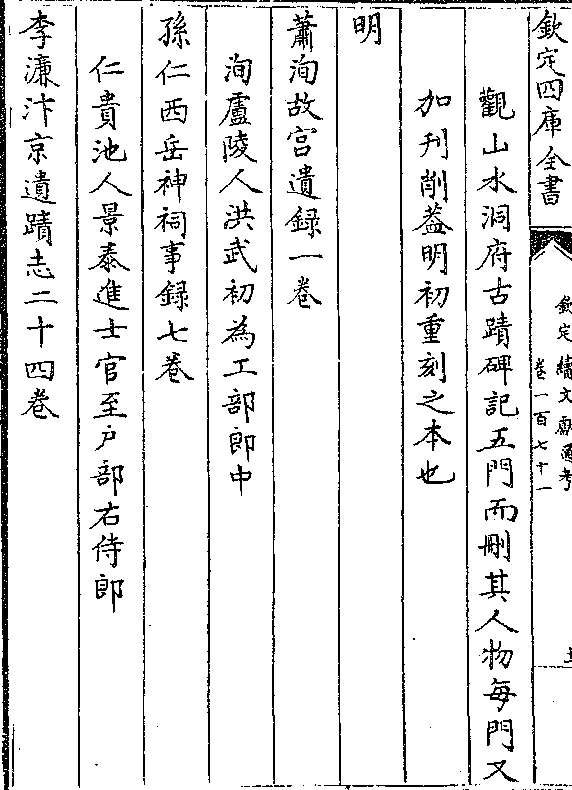 欽定四庫全書
欽定續文獻通考
卷一百七十一
觀山水洞府古蹟碑記五門而刪其人物每門又
加刋削葢明初重刻之本也
明
蕭洵故宫遺録一卷
洵廬陵人洪武初為工部郎中
孫仁西岳神祠事録七卷
仁貴池人景泰進士官至户部右侍郎
李濂汴京遺蹟志二十四卷